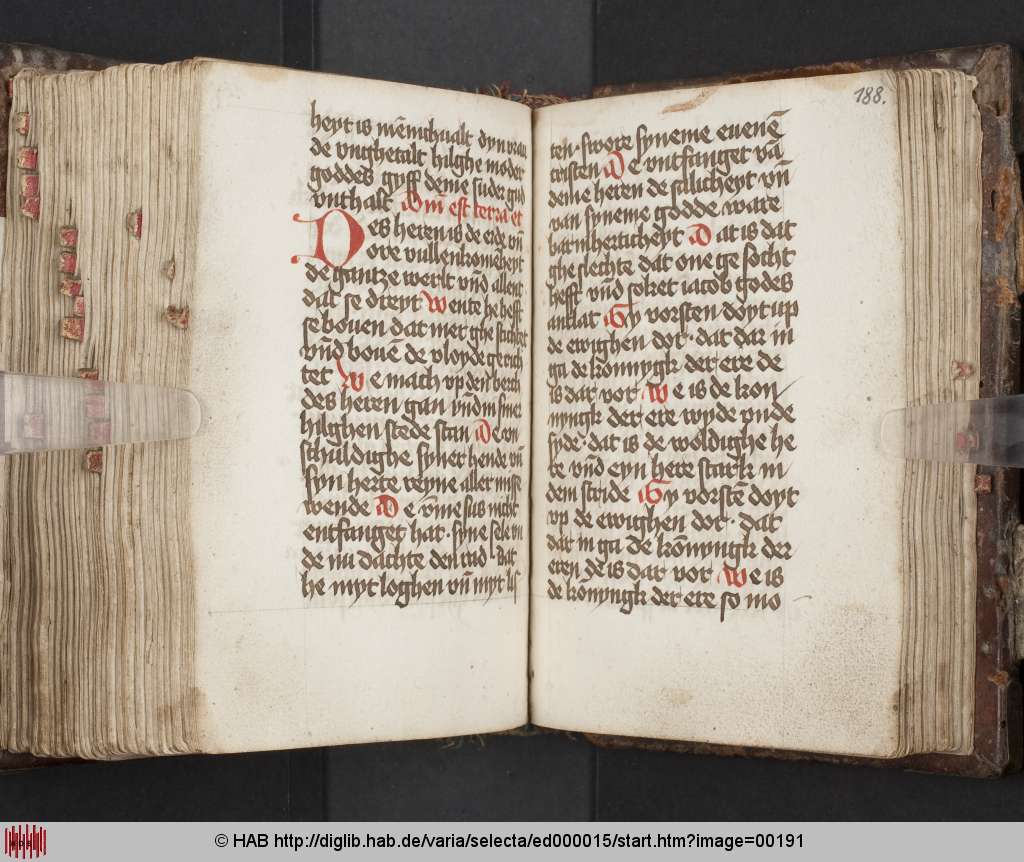 heyt is mēnichualt dyn vrau
de vnghetalt hilghe moder
goddes gyff deme suder gud
vnthalt Dnī est terra et
Des heren is de erde vn̄
ore vullenkomeheyt
de gantze werlt vn̄d allent
dat se dreyt Wente he hefft
se bouen dat mer ghe stichtet
vn̄d bouē de vloyde gerich
tet We mach vp den berch
des heren gan vn̄d in siner
hilghen stede stan De vn
schuldighe syner hende vn̄
syn herte reyne aller misse
wende De v̄me sus nicht
entfanget hat · syne sele vn
de nu dachte den rad · dat
he myt loghen vn̄ myt lis
188.
ten · swore syneme euenē
cristen De vntfanget vā
deme heren de sillicheyt vn̄
van syneme godde ware
barmherticheyt Dat is dat
ghe slechte dat one ge socht
hefft vn̄d soket iacob godes
antlat Gy vorsten doyt up
de ewighen dor · dat dar in
ga de konnygk der ere de
is dar vor We is de kon
nyngk der ere wyde vnde
syde · dat is de woldighe he
re vn̄d eyn here stark in
dem stride Gy vorstē doyt
vp de ewighen dor · dat
dar in ga de kōnyngk der
eren de is dar vor We is
de kōnyngk der ere so mo
© HAB http://diglib.hab.de/varia/selecta/ed000015/start.htm?image=00191